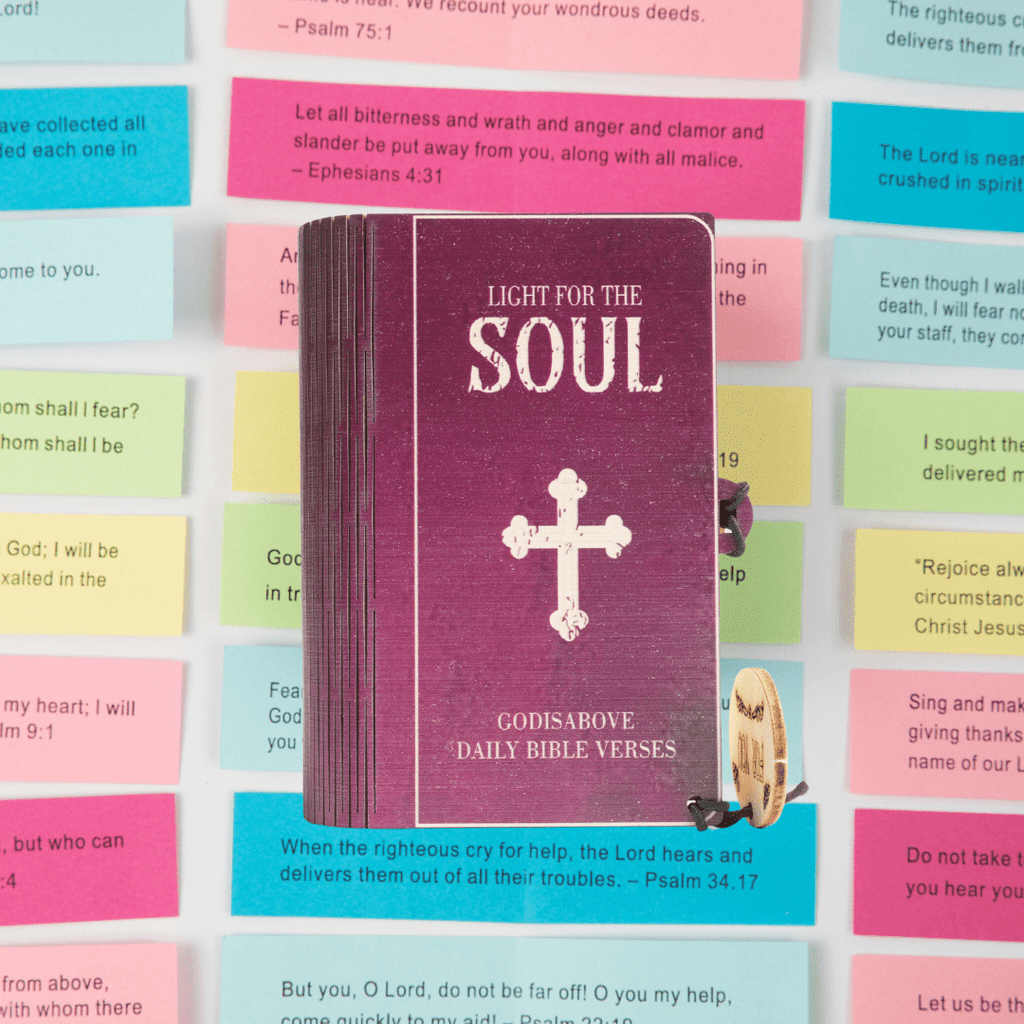 ord!
We recount your wondrous deeds.
– Psalm 75:1
The righteous c
delivers them fr
ave collected all
ded each one in
Let all bitterness and wrath and anger and clamor and
slander be put away from you, along with all malice.
– Ephesians 4:31
The Lord is near
crushed in spirit
ome to you.
An
the
Fa
ning in
the
Even though I wal
death, I will fear no
your staff, they com
LIGHT FOR THE
SOUL
om shall I fear?
hom shall I be
19
I sought the
delivered m
God; I will be
xalted in the
God
in tr
elp
"Rejoice alw
circumstanc
Christ Jesus
my heart; I will
lm 9:1
Fea
God
you
u
Sing and mak
giving thanks
name of our L
GODISABOVE
DAILY BIBLE VERSES
, but who can
:4
When the righteous cry for help, the Lord hears and
delivers them out of all their troubles. – Psalm 34.17
Do not take t
you hear you
from above,
with whom there
But you, O Lord, do not be far off! O you my help,
come quickly to my aid! – Psalm 22:19
Let us be th